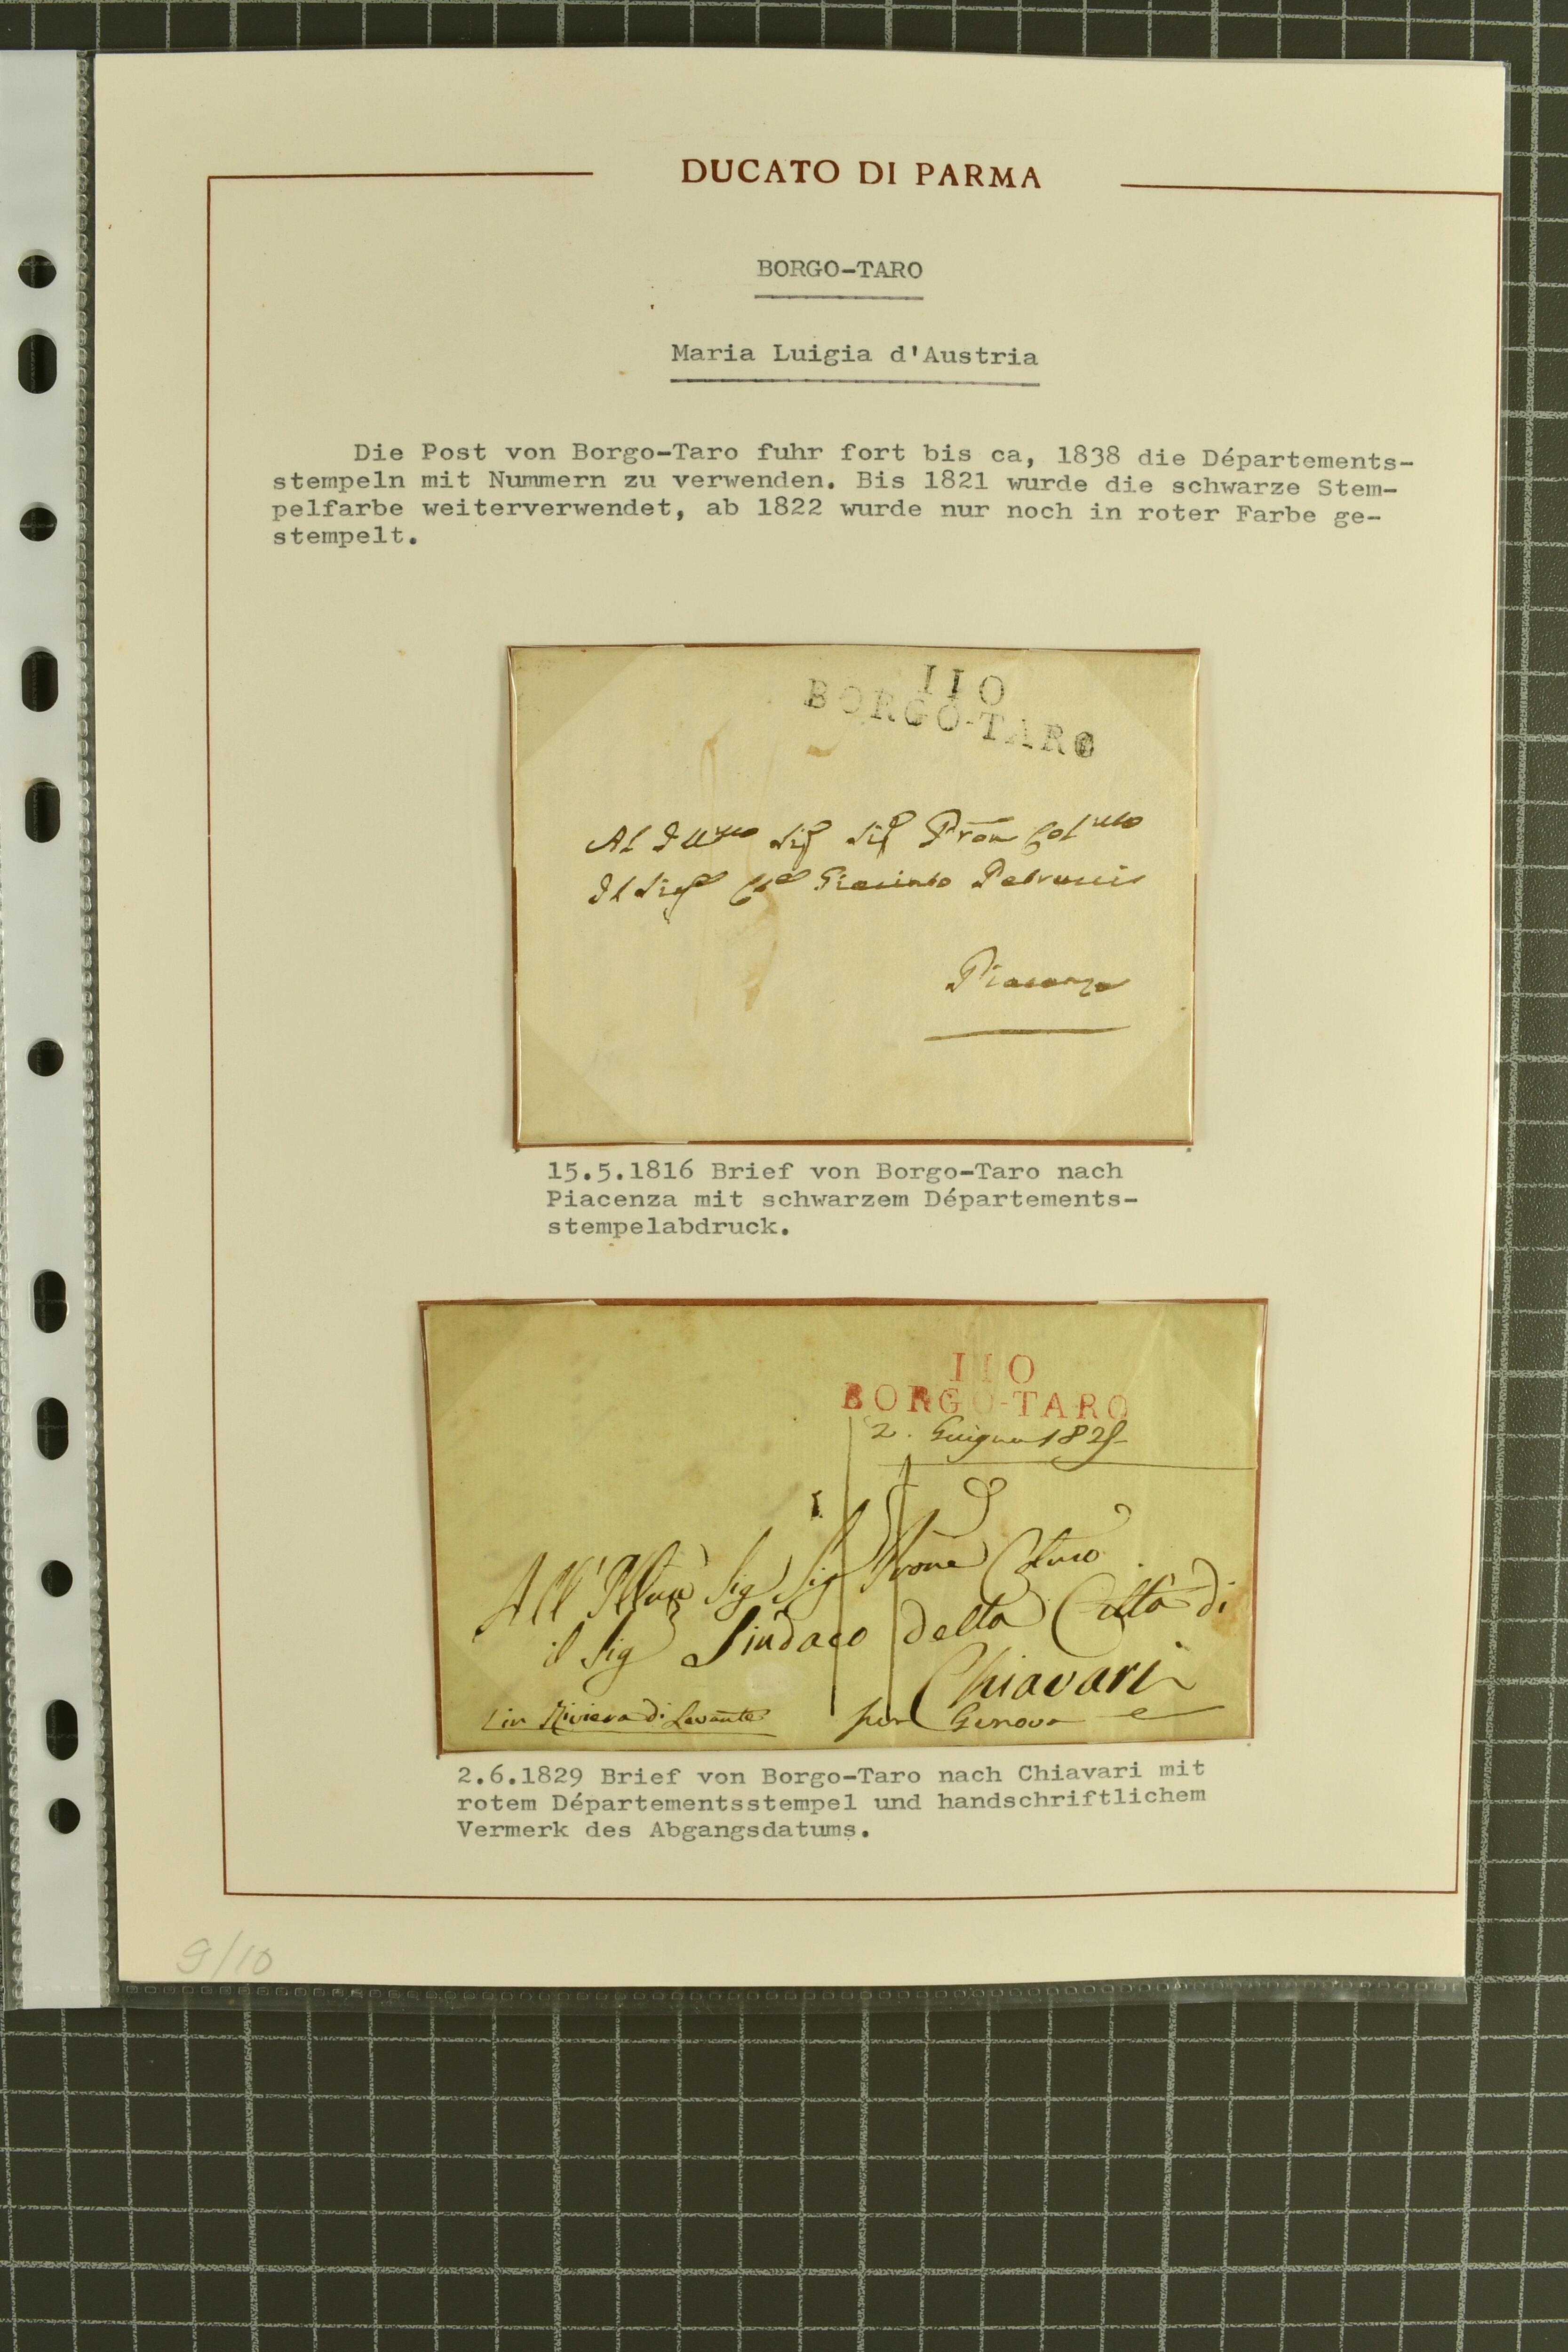 DUCATO DI PARMA
BORGO-TARO
Maria Luigia d'Austria
Die Post von Borgo-Taro fuhr fort bis ca, 1838 die Départements-
stempeln mit Nummern zu verwenden. Bis 1821 wurde die schwarze Stem-
pelfarbe weiterverwendet, ab 1822 wurde nur noch in roter Farbe ge-
stempelt.
110
BORGO-TARO
Al Sig Sig Pron
Il Sig Giacinto
Piacenza
15.5.1816 Brief von Borgo-Taro nach
Piacenza mit schwarzem Départements-
stempelabdruck.
110
BORGO-TARO
2. Giugno 1829
Sig Sig Prone
il Sig Sindaco della Città di
Chiavari
in Riviera di Levante per Genova
2.6.1829 Brief von Borgo-Taro nach Chiavari mit
rotem Départementsstempel und handschriftlichem
Vermerk des Abgangsdatums.
9/10